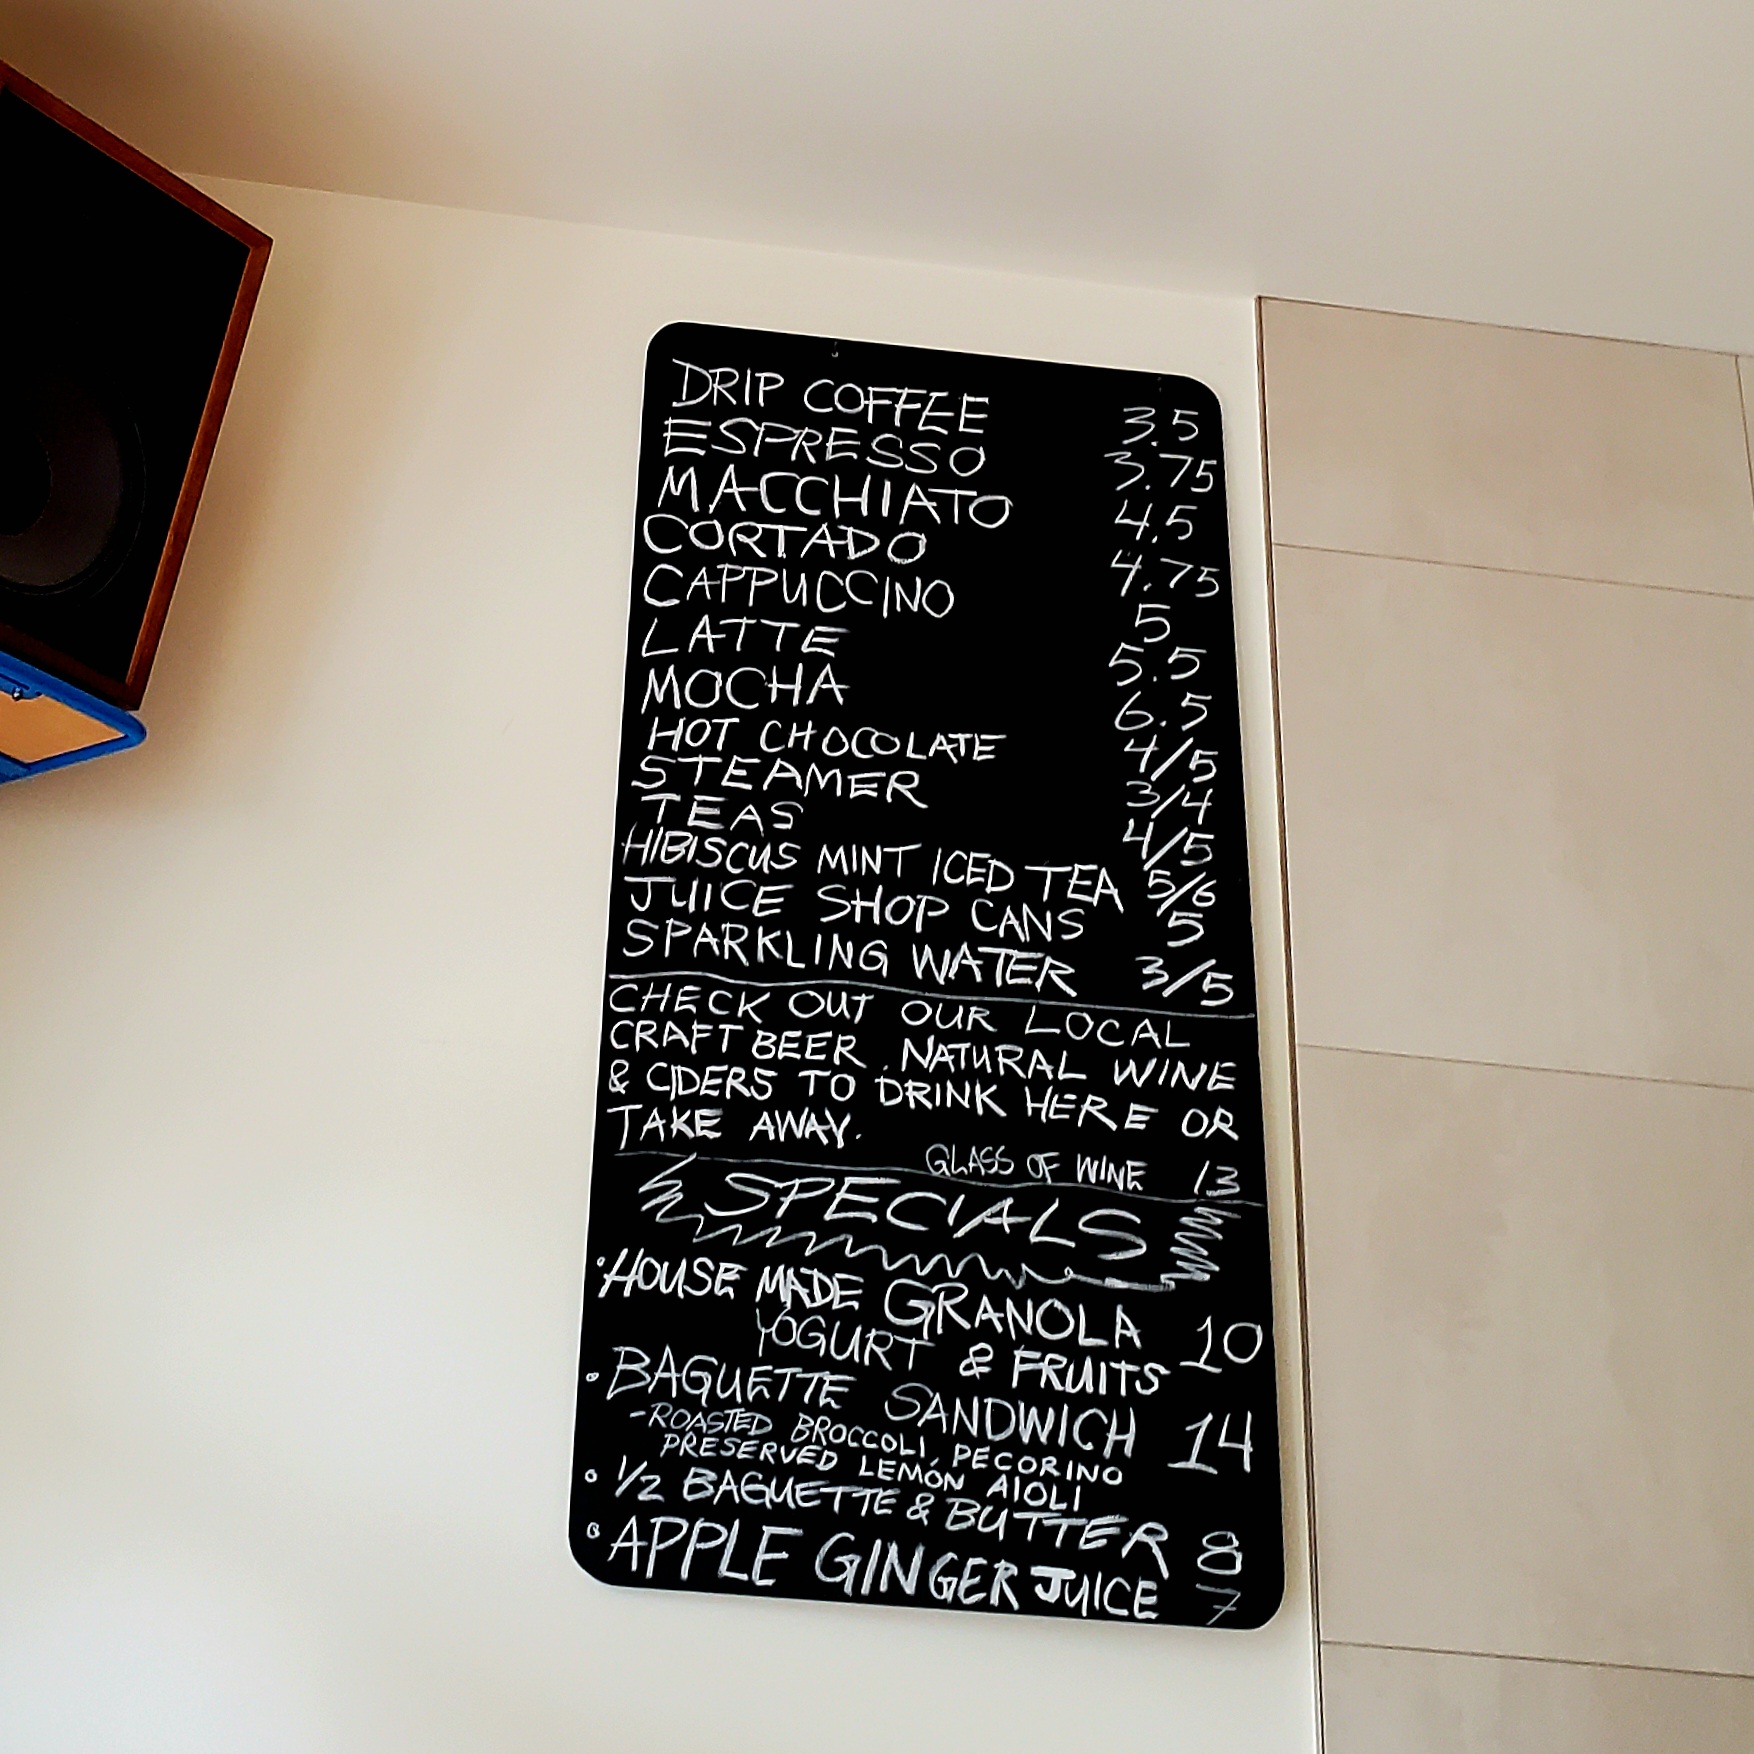 DRIP COFFEE 3.5
ESPRESSO 3.75
MACCHIATO 4.5
CORTADO 4.75
CAPPUCCINO 5
LATTE 5.5
MOCHA 6.5
HOT CHOCOLATE 4/5
STEAMER 3/4
TEAS 4/5
HIBISCUS MINT ICED TEA 5/6
JUICE SHOP CANS 5
SPARKLING WATER 3/5
CHECK OUT OUR LOCAL
CRAFT BEER, NATURAL WINE
& CIDERS TO DRINK HERE OR
TAKE AWAY.
GLASS OF WINE 13
SPECIALS
• HOUSE MADE GRANOLA 10
YOGURT & FRUITS
• BAGUETTE SANDWICH 14
- ROASTED BROCCOLI, PECORINO
PRESERVED LEMON AIOLI
• 1/2 BAGUETTE & BUTTER 8
• APPLE GINGER JUICE 7